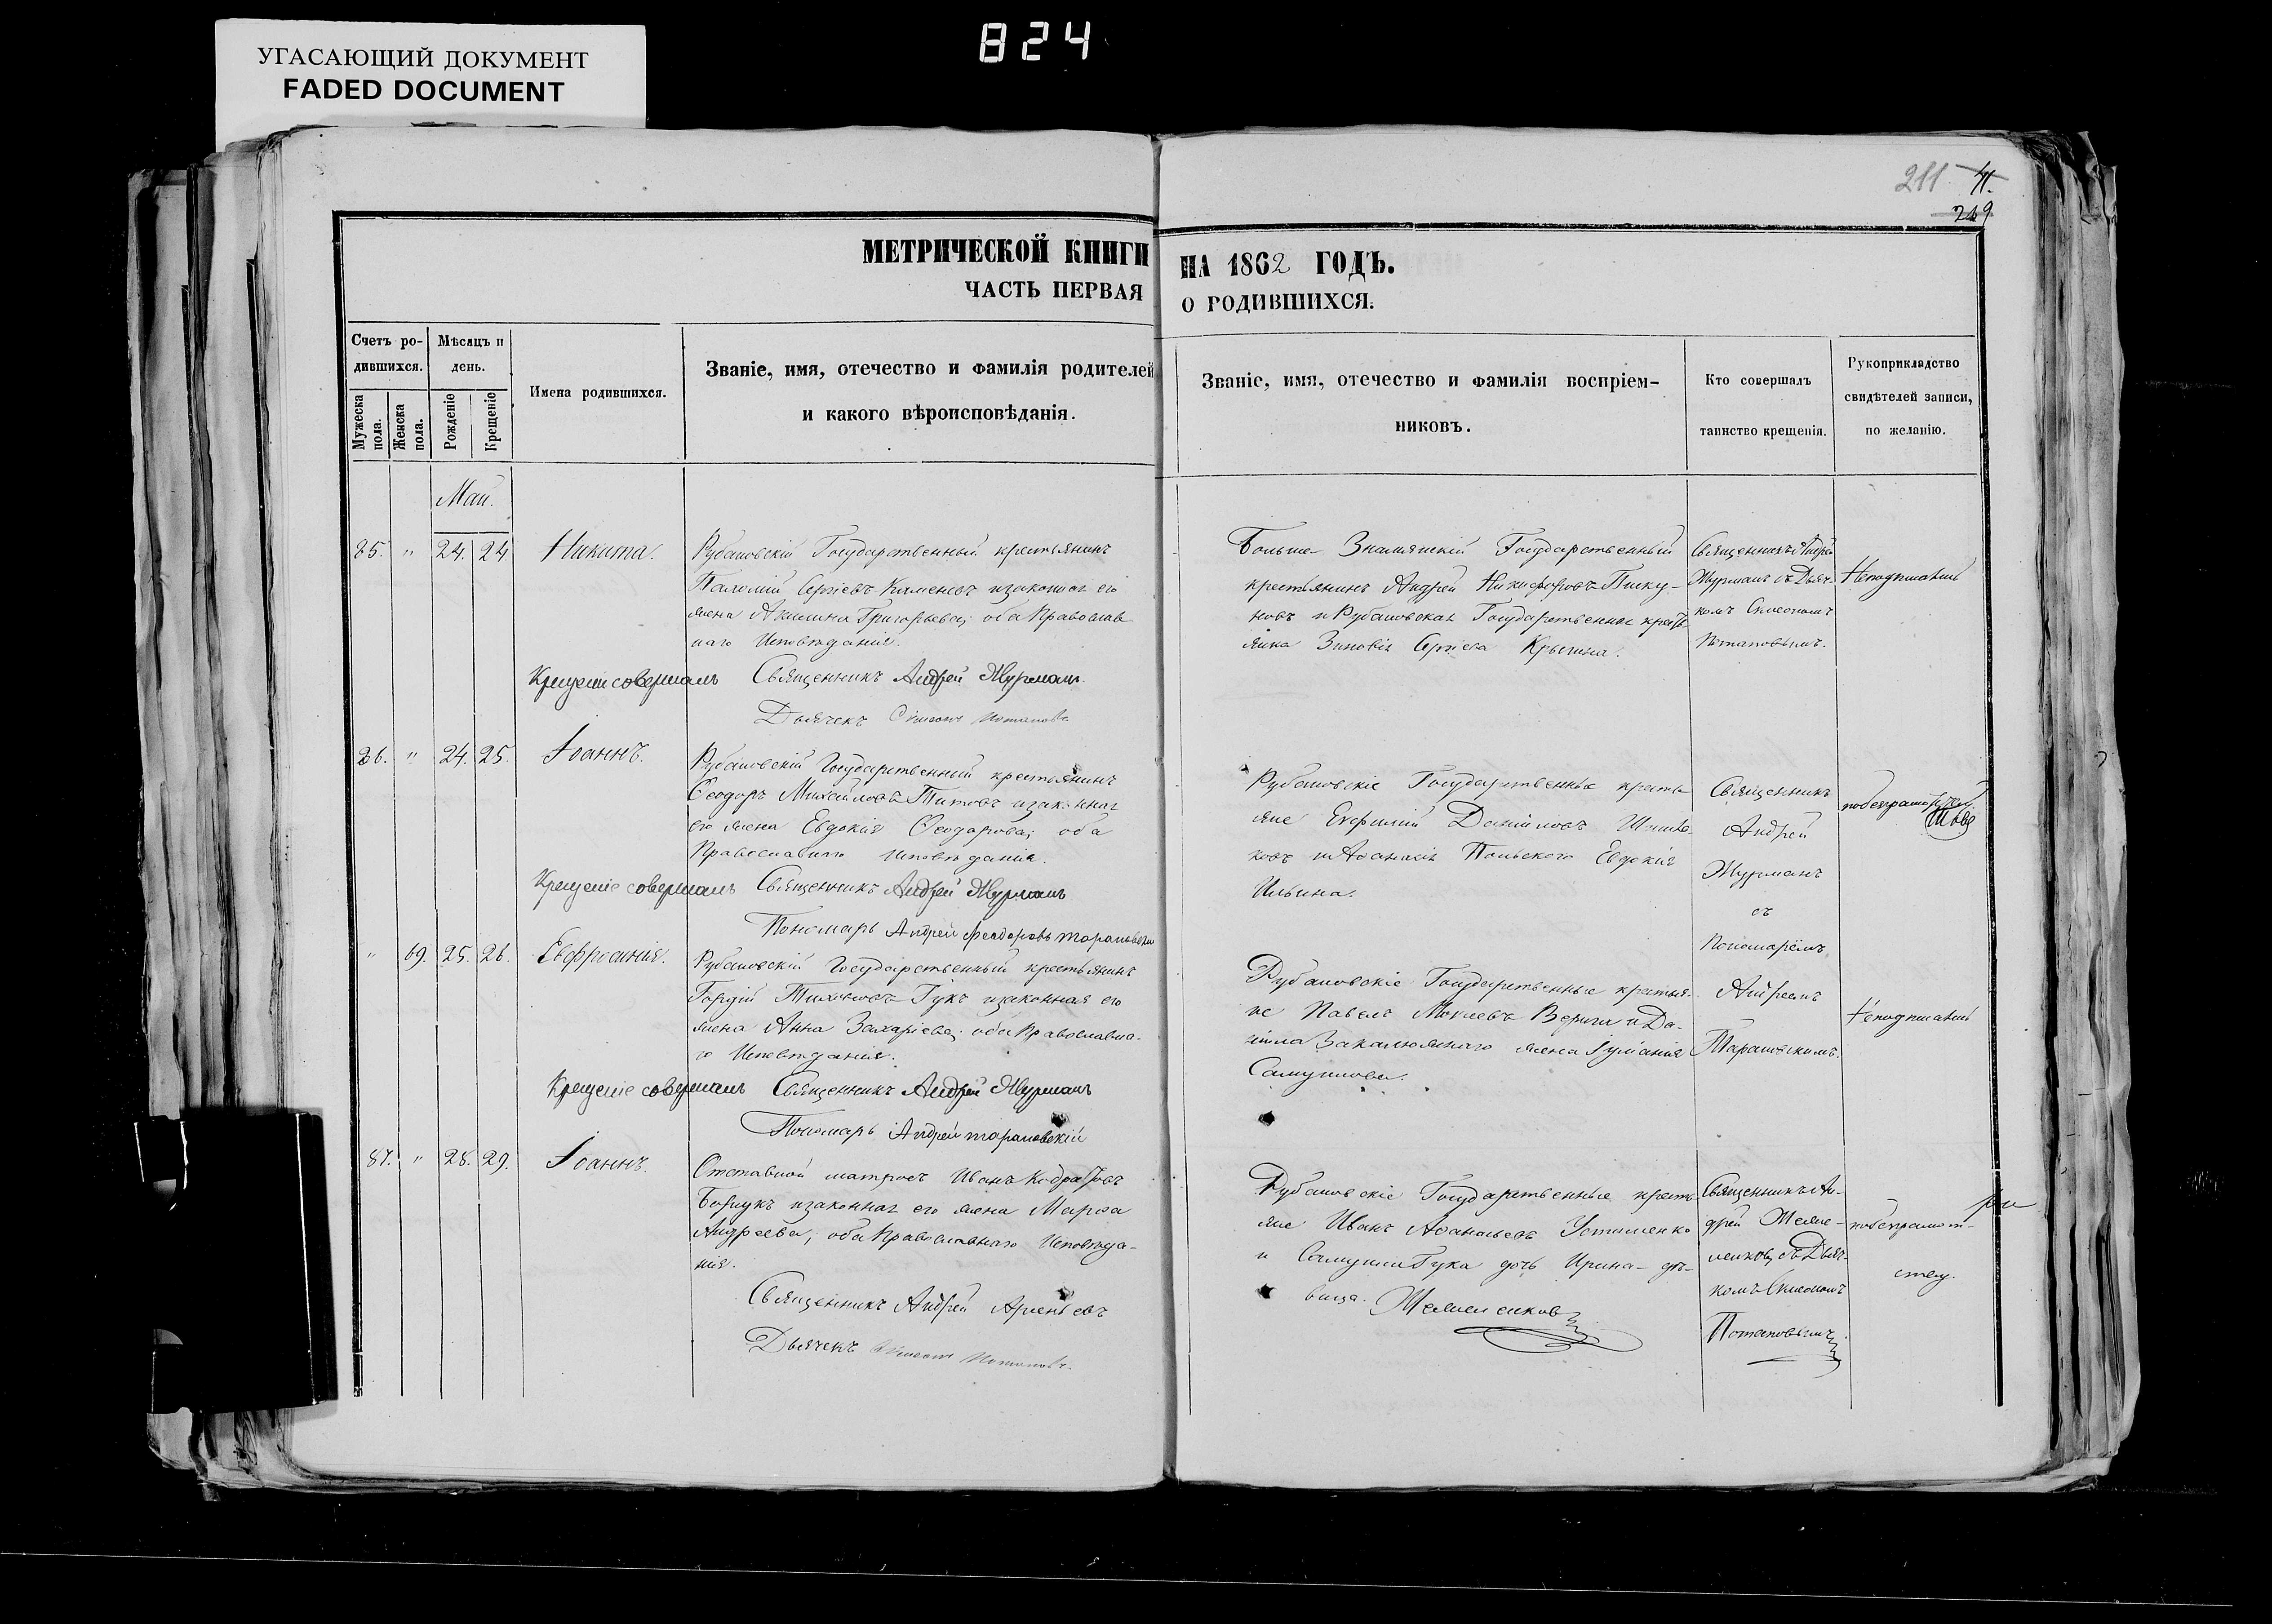 824
УГАСАЮЩИЙ ДОКУМЕНТ
FADED DOCUMENT
211 41.
219
МЕТРИЧЕСКОЙ КНИГИ НА 1862 ГОДЪ.
ЧАСТЬ ПЕРВАЯ О РОДИВШИХСЯ.
Счетъ ро-
дившихся.
Мужеска
пола.
Женска
пола.
Мѣсяцъ и
день.
Рожденіе
Крещеніе
Имена родившихся.
Званіе, имя, отечество и фамилія родителей
и какого вѣроисповѣданія.
Званіе, имя, отечество и фамилія воспріем-
никовъ.
Кто совершалъ
таинство крещенія.
Рукоприкладство
свидѣтелей записи,
по желанію.
Май.
85. " 24. 24. Никита.
Рубановскій Государственный крестьянинъ
Пахомій Сергіевъ изаконная его
жена Акилина Григорьева; оба Православ
наго Исповѣданія.
Крещеніе совершалъ Священникъ Андрей Журманъ
Дьячекъ Симеонъ Потаповъ
Больше-Знаменскій Государственный
крестьянинъ Андрей Никифоровъ Пику-
новъ и Рубановская Государственная кресть
янка Зиновія Сергіева Крыгина.
Священникъ Андрей
Журманъ съ Дьяч-
комъ Симеономъ
Потаповымъ.
Неподписались
86. " 24. 25. Іоаннъ.
Рубановскій Государственный крестьянинъ
Ѳеодоръ Михайловъ Титовъ изаконная
его жена Евдокія Ѳеодорова; оба
Православнаго Исповѣданія.
Крещеніе совершалъ Священникъ Андрей Журманъ
Пономарь Андрей Феодоровъ Тарановскій
Рубановскіе Государственные кресть
яне Евфимій Даниловъ
Польского Евдокія
Ильина.
Священникъ
Андрей
Журманъ
съ
Пономарёмъ
Андреемъ
Тарановскимъ.
" 69. 25. 26. Евфросинія.
Рубановскій Государственный крестьянинъ
Гордій Тихоновъ Гукъ изаконная его
жена Анна Захаріева; оба Православна-
го Исповѣданія.
Крещеніе совершалъ Священникъ Андрей Журманъ
Пономарь Андрей Тарановскій
Рубановскіе Государственные крестья-
не Павелъ Мокіевъ Верига и Да-
ніила жена Іуліанія
Самуилова.
Неподписались
87. " 28. 29. Іоаннъ.
Отставной матросъ Иванъ Кодратовъ
Борщукъ изаконная его жена Марѳа
Андреева; оба Православнаго Исповѣда-
нія.
Священникъ Андрей Арсеньевъ
Дьячекъ Симеонъ Потаповъ.
Рубановскіе Государственные кресть
яне Иванъ Аѳанасьевъ Устименко
и Самуила Гука дочь Ирина-дѣ-
вица.
Священникъ Ан-
дрей
съ Дьяч-
комъ Симеономъ
Потаповымъ
побезграмот-
ству.